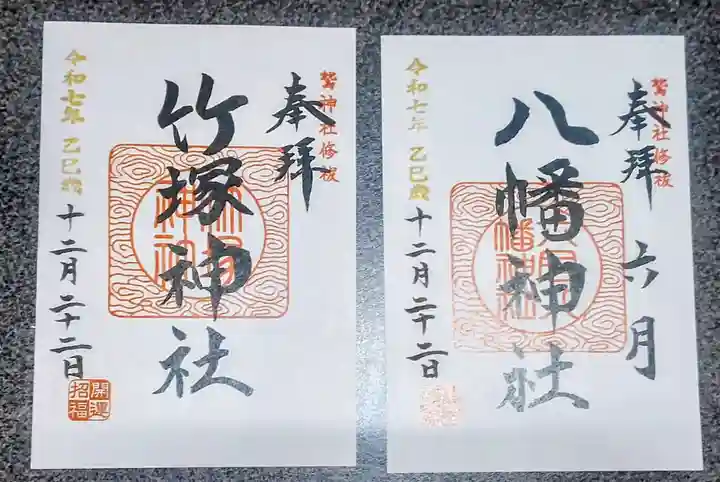 鷲神社修祓
奉拝
竹塚神社
令和七年 乙巳歳
十二月二十二日
開運
招福
鷲神社修祓
奉拝
六月
八幡神社
令和七年 乙巳歳
十二月二十二日